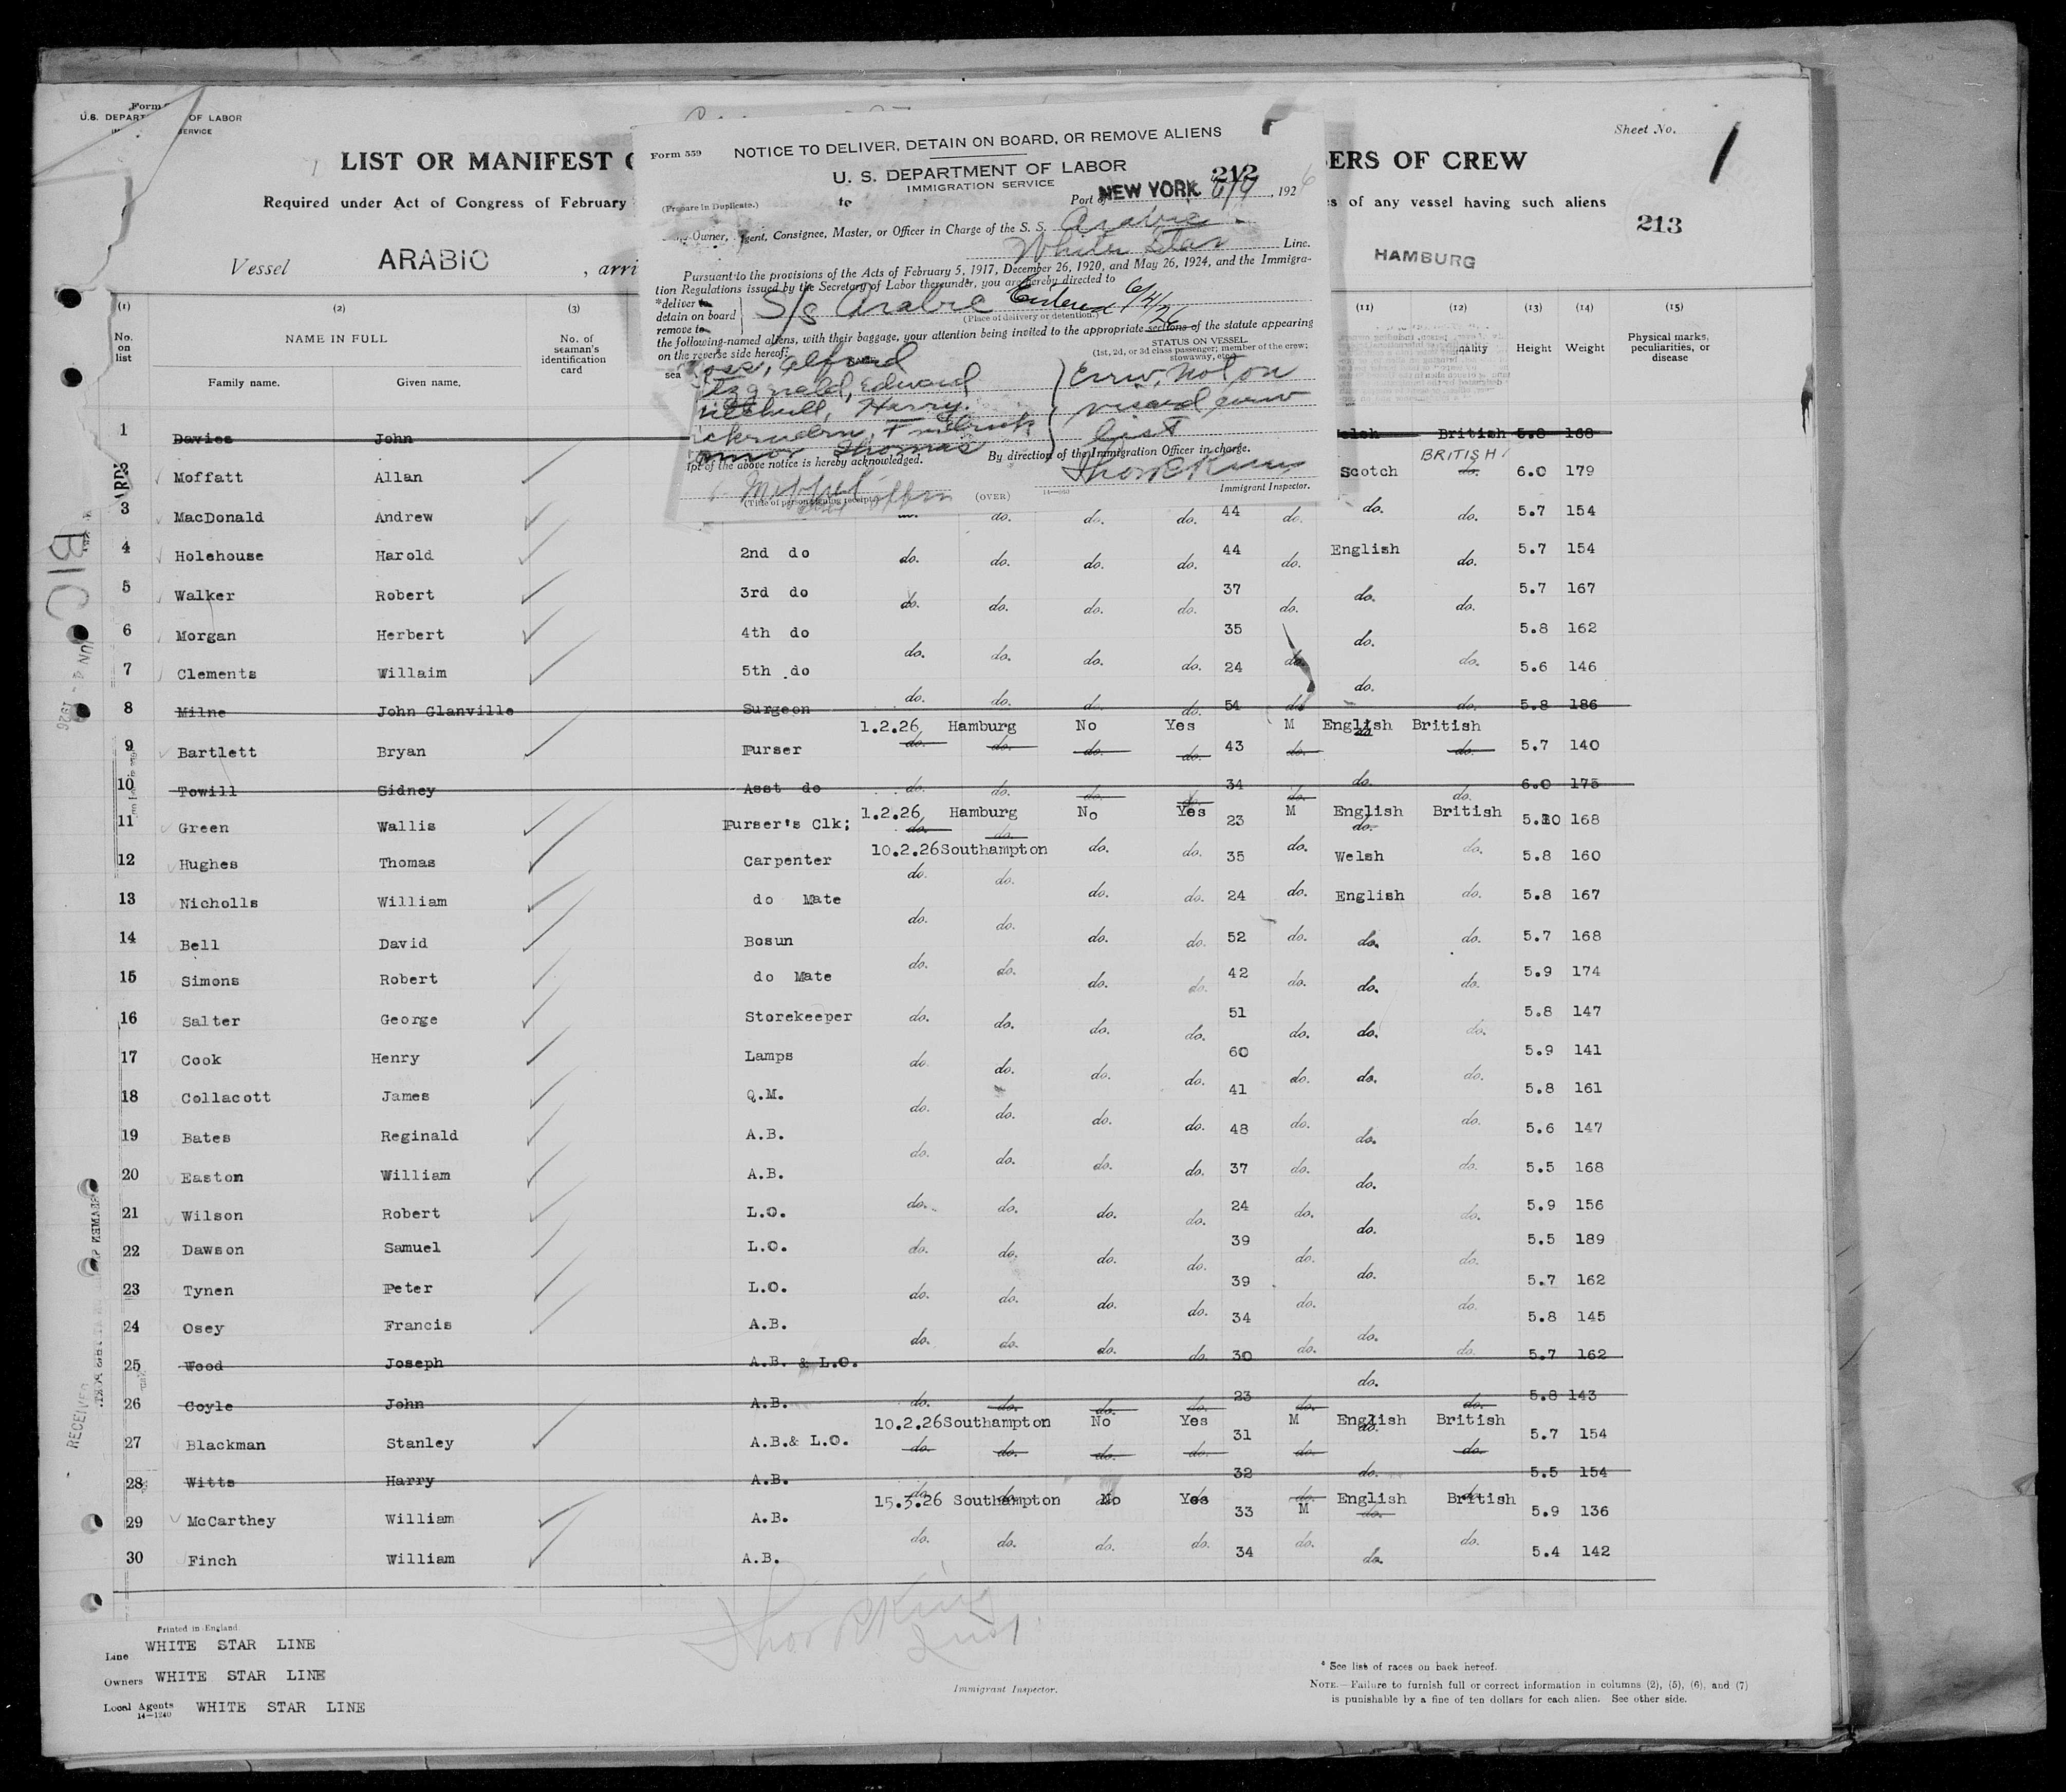 Form
U.S. DEPART OF LABOR
SERVICE
LIST OR MANIFEST
Required under Act of Congress of February
Vessel ARABIC , arri
Form 559 NOTICE TO DELIVER, DETAIN ON BOARD, OR REMOVE ALIENS
U. S. DEPARTMENT OF LABOR
IMMIGRATION SERVICE
212
(Prepare in Duplicate.) to Port of NEW YORK 6/4, 1926
Owner, Agent, Consignee, Master, or Officer in Charge of the S. S. Arabic
White Star Line.
Pursuant to the provisions of the Acts of February 5, 1917, December 26, 1920, and May 26, 1924, and the Immigra-
tion Regulations issued by the Secretary of Labor thereunder, you are hereby directed to
*deliver to
detain on board S/s Arabic Entered 6/4/26
remove to (Place of delivery or detention.)
the following-named aliens, with their baggage, your attention being invited to the appropriate sections of the statute appearing
on the reverse side hereof:
STATUS ON VESSEL
(1st, 2d, or 3d class passenger; member of the crew; stowaway, etc.)
Alfred
Edward
Harry
Thomas
Crew, not on
visaed crew
list
ipt of the above notice is hereby acknowledged. By direction of the Immigration Officer in charge.
Thos R King
(Title of person signing receipt) (OVER) Immigrant Inspector.
Sheet No. 1
ERS OF CREW
s of any vessel having such aliens
213
HAMBURG
(1) (2) (3) (11) (12) (13) (14) (15)
No. on list NAME IN FULL No. of seaman's identification card Height Weight Physical marks, peculiarities, or disease
Family name. Given name.
1 Davies John British 5.8 168
BRITISH
2 Moffatt Allan Scotch do. 6.0 179
3 MacDonald Andrew do. do. do. 44 do. do. do. 5.7 154
4 Holehouse Harold 2nd do do. do. do. do. 44 do. English do. 5.7 154
5 Walker Robert 3rd do do. do. do. do. 37 do. do. do. 5.7 167
6 Morgan Herbert 4th do 35 do. 5.8 162
7 Clements Willaim 5th do do. do. do. do. 24 do. do. do. 5.6 146
8 Milne John Glanville Surgeon do. do. do. do. 54 do. do. 5.8 186
1.2.26 Hamburg No Yes M English British
9 Bartlett Bryan Purser do. do. do. do. 43 do. do. do. 5.7 140
10 Towill Sidney Asst do do. do. do. do. 34 do. do. do. 6.0 175
1.2.26 Hamburg No Yes M English British
11 Green Wallis Purser's Clk; do. do. 23 do. 5.10 168
12 Hughes Thomas Carpenter 10.2.26 Southampton do. do. 35 do. Welsh do. 5.8 160
13 Nicholls William do Mate do. do. do. do. 24 do. English do. 5.8 167
14 Bell David Bosun do. do. do. do. 52 do. do. do. 5.7 168
15 Simons Robert do Mate do. do. do. do. 42 do. do. do. 5.9 174
16 Salter George Storekeeper do. do. do. do. 51 do. do. do. 5.8 147
17 Cook Henry Lamps do. do. do. do. 60 do. do. do. 5.9 141
18 Collacott James Q.M. do. do. do. do. 41 do. do. 5.8 161
19 Bates Reginald A.B. do. do. do. do. 48 do. do. 5.6 147
20 Easton William A.B. do. do. do. do. 37 do. do. do. 5.5 168
21 Wilson Robert L.O. do. do. do. do. 24 do. do. do. 5.9 156
22 Dawson Samuel L.O. do. do. do. do. 39 do. do. do. 5.5 189
23 Tynen Peter L.O. do. do. do. do. 39 do. do. do. 5.7 162
24 Osey Francis A.B. do. do. do. do. 34 do. do. do. 5.8 145
25 Wood Joseph A.B. & L.O. 30 do. 5.7 162
26 Coyle John A.B. do. do. do. do. 23 do. do. 5.8 143
10.2.26 Southampton No Yes M English British
27 Blackman Stanley A.B.& L.O. do. do. do. do. 31 do. do. do. 5.7 154
28 Witts Harry A.B. do. do. do. do. 32 do. do. do. 5.5 154
15.3.26 Southampton No Yes M English British
29 McCarthey William A.B. 33 do. 5.9 136
30 Finch William A.B. do. do. do. do. 34 do. do. do. 5.4 142
Thos R King
Immigrant Inspector.
Printed in England
Line WHITE STAR LINE
Owners WHITE STAR LINE
Local Agents WHITE STAR LINE
14—1240
* See list of races on back hereof.
NOTE.—Failure to furnish full or correct information in columns (2), (5), (6), and (7)
is punishable by a fine of ten dollars for each alien. See other side.
RECEIVED